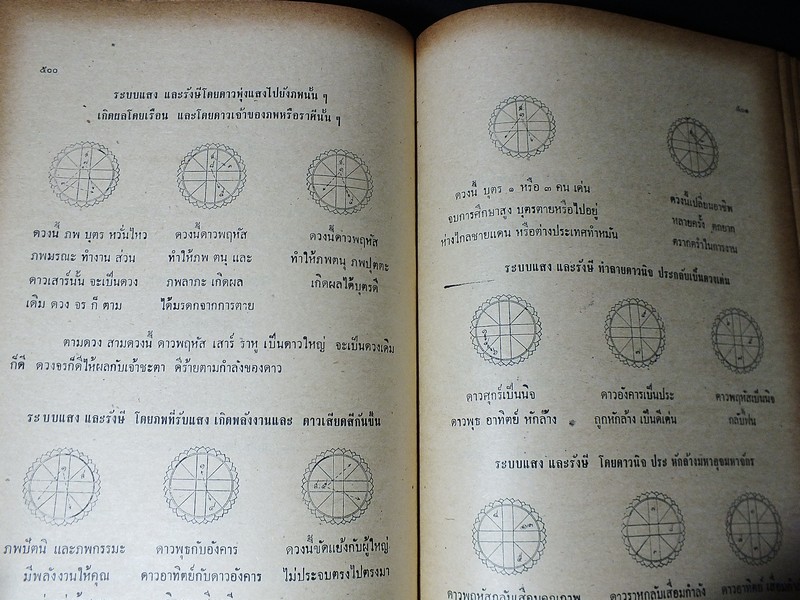 ๕๐๐
ระบบแสง และรังษีโดยดาวพุ่งแสงไปยังภพนั้น ๆ
เกิดผลโดยเรือน และโดยดาวเจ้าของภพหรือราศีนั้น ๆ
ดวงนี้ ภพ บุตร หวั่นไหว
ภพมรณะ ทำงาน ส่วน
ดาวเสาร์นั้น จะเป็นดวง
เดิม ดวง จร ก็ ตาม
ดวงนี้ดาวพฤหัส
ทำให้ภพ ตนุ และ
ภพลาภะ เกิดผล
ได้มรดกจากการตาย
ดวงนี้ดาวพฤหัส
ทำให้ภพตนุ ภพปุตตะ
เกิดผลได้บุตรดี
ตามดวง สามดวงนี้ ดาวพฤหัส เสาร์ ราหู เป็นดาวใหญ่ จะเป็นดวงเดิม
ก็ดี ดวงจรก็ดีให้ผลกับเจ้าชะตา ดีร้ายตามกำลังของดาว
ระบบแสง และรังษี โดยภพที่รับแสง เกิดพลังงานและ ดาวเสียดสีกันขึ้น
ภพปัตนิ และภพกรรมะ
มีพลังงานให้คุณ
ดาวพุธกับอังคาร
ดาวอาทิตย์กับดาวอังคาร
ดวงนี้ขัดแย้งกับผู้ใหญ่
ไม่ประจบตรงไปตรงมา
๕๐๑
ดวงนี้ บุตร ๑ หรือ ๓ คน เด่น
จบการศึกษาสูง บุตรตายหรือไปอยู่
ห่างไกลชายแดน หรือต่างประเทศทำหมัน
ดวงนี้เปลี่ยนอาชีพ
หลายครั้ง ตกยาก
ตรากตรำในการงาน
ระบบแสง และรังษี ทำลายดาวนิจ ประกลับเป็นดวงเด่น
ดาวศุกร์เป็นนิจ
ดาวพุธ อาทิตย์ หักล้าง
ดาวอังคารเป็นประ
ถูกหักล้าง เป็นดีเด่น
ดาวพฤหัสเป็นนิจ
กลับฟื้น
ระบบแสง และรังษี โดยดาวนิจ ประ หักล้างมหาอุจมหาจักร
ดาวพฤหัสกลับเสื่อมคุณภาพ
ดาวราหูกลับเสื่อมกำลัง
ดาวอาทิตย์